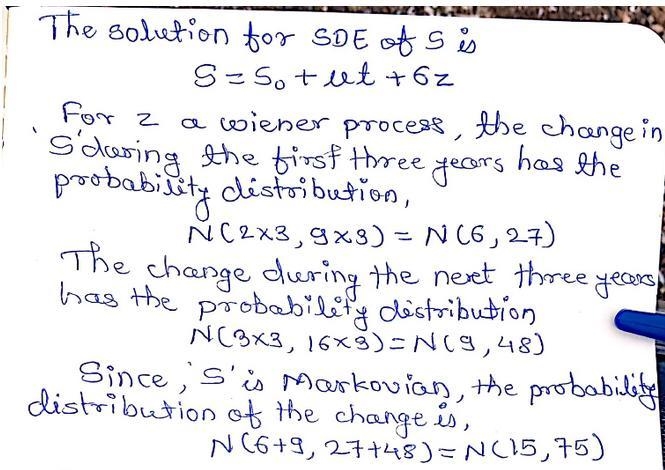 The solution for SDE of S is
S = S₀ + μt + σz
For z a wiener process, the change in
'S' during the first three years has the
probability distribution,
N(2×3, 9×3) = N(6, 27)
The change during the next three years
has the probability distribution
N(3×3, 16×3) = N(9, 48)
Since, 'S' is Markovian, the probability
distribution of the change is,
N(6+9, 27+48) = N(15, 75)